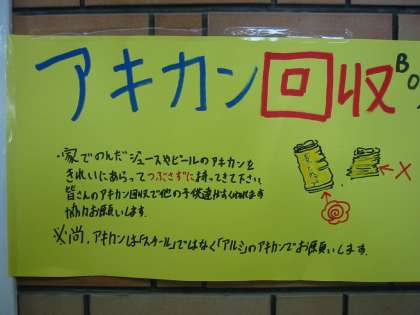 アキカン回収BO
・家でのんだジュースやビールのアキカンを
きれいにあらってつぶさずに持ってきて下さい。
皆さんのアキカン回収で他の子供達がすくわれます
協力お願いします。
尚、アキカンは「スチール」ではなく「アルミ」のアキカンでお願いします。
×